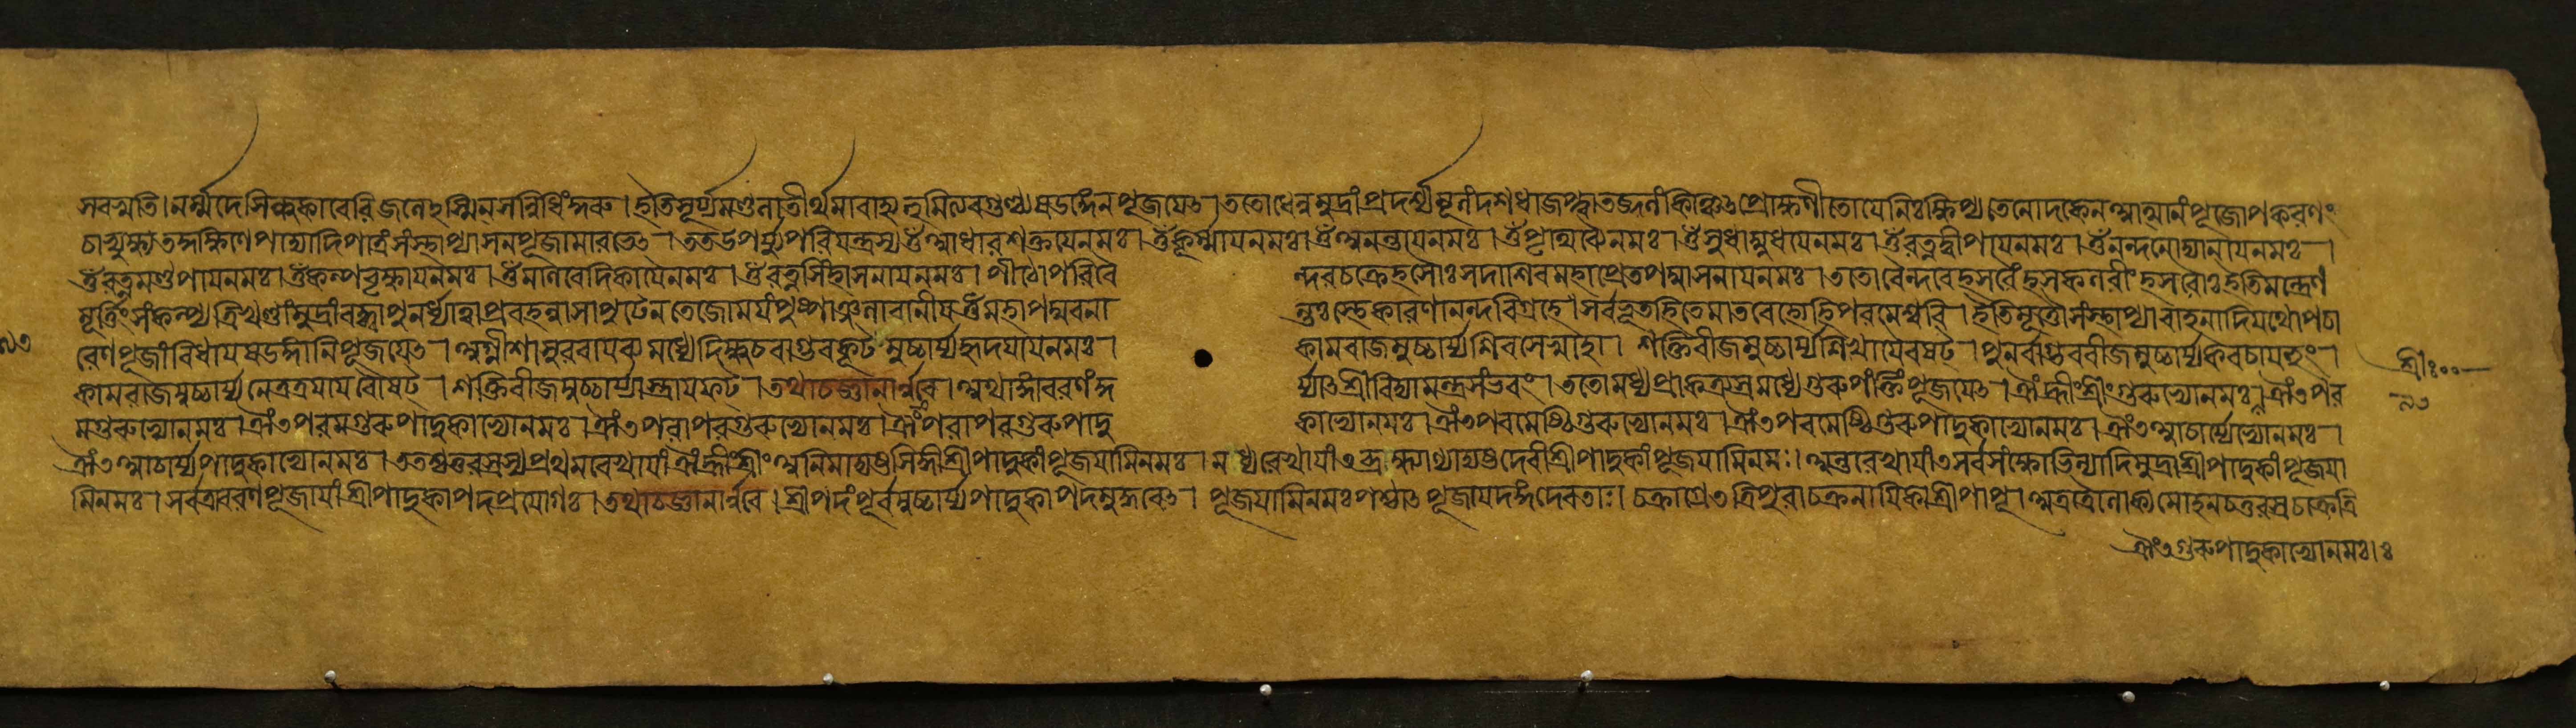 সরস্বতি। নর্ম্মদে সিন্ধুকাবেরি জলেঽস্মিন্ সন্নিধিং কুরু। ইতি সূর্য্যমণ্ডলাত্তীর্থমাবাহ্য হুমিত্যবগুণ্ঠ্য ষডঙ্গেন পূজয়েৎ। ততো ধেনুমুদ্রাং প্রদর্শ্য মূলং দশধা জপ্ত্বা তজ্জলং কিঞ্চিৎ প্রোক্ষণীতোয়ে নিঃক্ষিপ্য তেনোদকেন আত্মানং পূজোপকরণং
চাভ্যুক্ষ্য তদ্দক্ষিণে পাদ্যাদিপাত্রং সংস্থাপ্যাসনপূজামারভেৎ। তত উপর্য্যুপরি যন্ত্রস্য ওঁ আধারশক্তয়ে নমঃ। ওঁ কূর্ম্মায় নমঃ। ওঁ অনন্তায় নমঃ। ওঁ পৃথিব্যৈ নমঃ। ওঁ সুধাম্বুধয়ে নমঃ। ওঁ রত্নদ্বীপায় নমঃ। ওঁ নন্দনোদ্যানায় নমঃ।
ওঁ রত্নমণ্ডপায় নমঃ। ওঁ কল্পবৃক্ষায় নমঃ। ওঁ মণিবেদিকায়ৈ নমঃ। ওঁ রত্নসিংহাসনায় নমঃ। পীঠোপরি বৈন্দবচক্রে হসৌঃ সদাশিবমহাপ্রেতপদ্মাসনায় নমঃ। ততো বৈন্দবে হসরৈং হসকলরীং হসরৌঃ ইতি মন্ত্রেণ
মূর্ত্তিং সংকল্প্য ত্রিখণ্ডাং মুদ্রাং বদ্ধ্বা পুনর্ধ্যাত্বা প্রবহন্নাসাপুটেন তেজোময়ং পুষ্পাঞ্জলাবানীয় ওঁ মহাপদ্মবনান্তঃস্থে কারণানন্দবিগ্রহে। সর্বভূতহিতে মাতরেহ্যেহি পরমেশ্বরি। ইতি মূর্ত্তৌ সংস্থাপ্যাবাহনাদি যথোপচা
রেণ পূজাং বিধায় ষডঙ্গানি পূজয়েৎ। অগ্নীশাসুরবায়বমধ্যে দিক্ষু চ বাগ্ভবকূটমুচ্চার্য্য হৃদয়ায় নমঃ। কামরাজমুচ্চার্য্য শিরসে স্বাহা। শক্তিবীজমুচ্চার্য্য শিখায়ৈ বষট্। পুনর্বাগ্ভববীজমুচ্চার্য্য কবচায় হুং।
কামরাজমুচ্চার্য্য নেত্রত্রয়ায় বৌষট্। শক্তিবীজমুচ্চার্য্যাস্ত্রায় ফট্। তথা চ জ্ঞানার্ণবে। অথাঙ্গাবরণং কুর্য্যাৎ শ্রীবিদ্যামন্ত্রসংভবং। ততো মধ্যপ্রাক্ত্র্যস্রমধ্যে গুরুপংক্তিং পূজয়েৎ। ঐং হ্রীং শ্রীং গুরুভ্যো নমঃ। ঐং৩ পর
মগুরুভ্যো নমঃ। ঐং৩ পরমগুরুপাদুকাভ্যো নমঃ। ঐং৩ পরাপরগুরুভ্যো নমঃ। ঐং৩ পরাপরগুরুপাদুকাভ্যো নমঃ। ঐং৩ পরমেষ্ঠিগুরুভ্যো নমঃ। ঐং৩ পরমেষ্ঠিগুরুপাদুকাভ্যো নমঃ। ঐং৩ আচার্য্যেভ্যো নমঃ।
ঐং৩ আচার্য্যপাদুকাভ্যো নমঃ। ততশ্চতুরস্রস্য প্রথমরেখায়াং ঐং হ্রীং শ্রীং অনিমাদ্যষ্টসিদ্ধিশ্রীপাদুকাং পূজয়ামি নমঃ। মধ্যরেখায়াং ৩ ব্রাহ্ম্যাদ্যষ্টদেবীশ্রীপাদুকাং পূজয়ামি নমঃ। অন্তরেখায়াং ৩ সর্বসংক্ষোভিন্যাদিমুদ্রাশ্রীপাদুকাং পূজয়া
মি নমঃ। সর্বত্রাবরণপূজায়াং শ্রীপাদুকাপদপ্রয়োগঃ। তথা চ জ্ঞানার্ণবে। শ্রীপদং পূর্বমুচ্চার্য্য পাদুকাপদমুদ্ধরেৎ। পূজয়ামি নমঃ পশ্চাৎ পূজয়েদঙ্গদেবতাঃ। চক্রাগ্রে ৩ ত্রিপুরাচক্রনায়িকাশ্রীপা পূ। অত্র ত্রৈলোক্যমোহনচতুরস্রচক্রে ত্রি
ঐং৩ গুরুপাদুকাভ্যো নমঃ।
শ্রীঃ